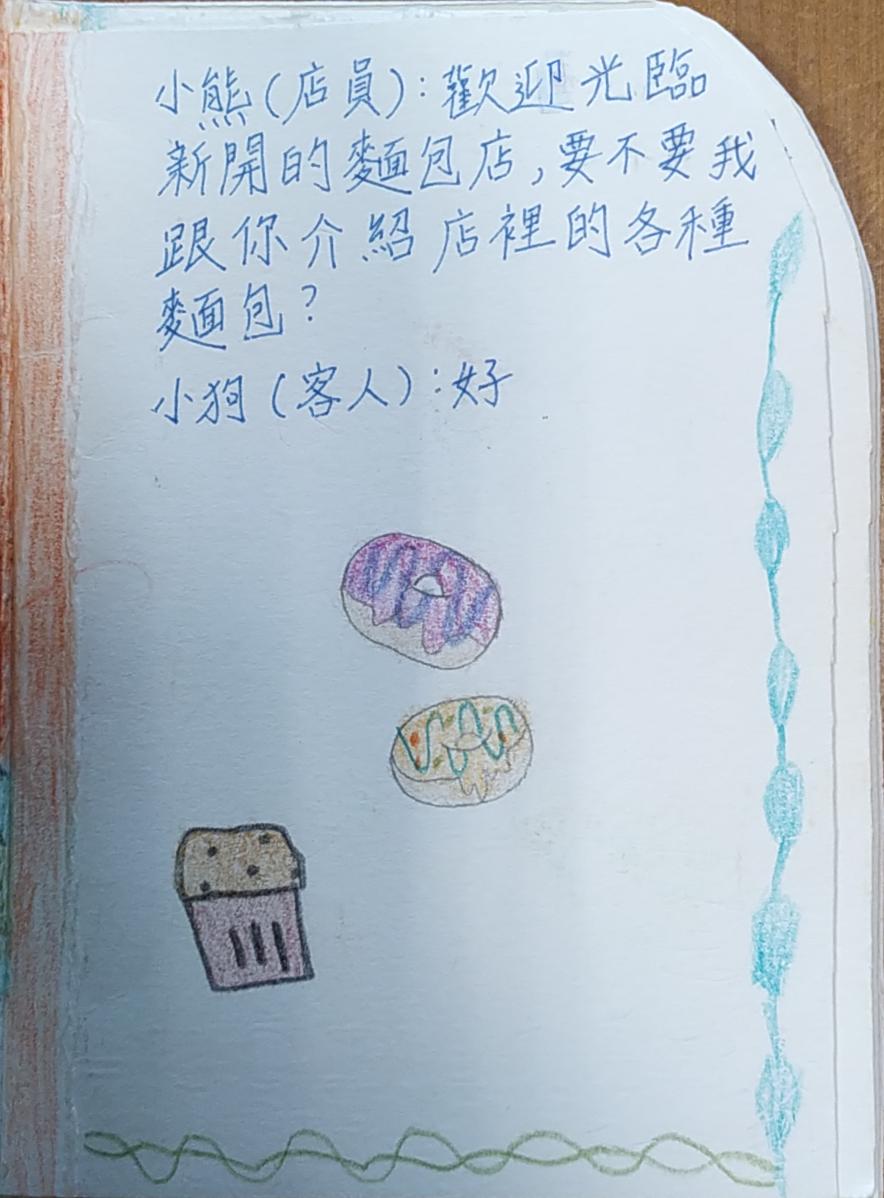 小熊(店員):歡迎光臨
新開的麵包店,要不要我
跟你介紹店裡的各種
麵包?
小狗(客人):好